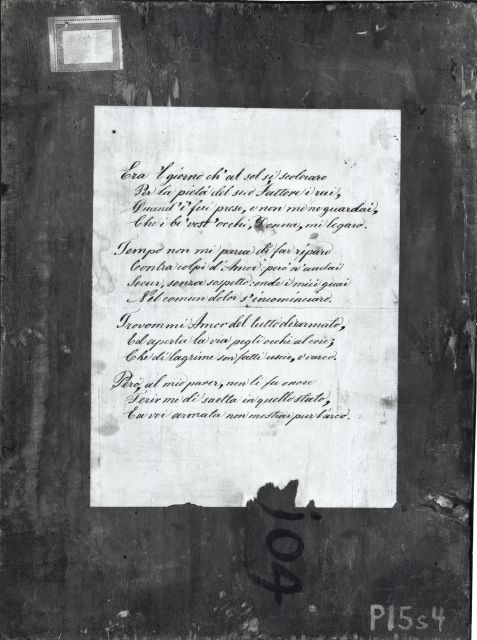 Era 'l giorno ch' al sol si scoloraro
Per la pietà del suo Fattore i rai,
Quand' i' fui preso, e non me ne guardai,
Che i be' vost' occhi, Donna, mi legaro.
Tempo non mi parea di far riparo
Contra colpi d' Amor: però n' andai
Secur, senza sospetto: onde i miei guai
Nel comun dolor s' incominciaro.
Trovommi Amor del tutto disarmato,
Ed aperta la via pegli occhi al core;
Che di lagrime son fatti uscio, e varco.
Però, al mio parer, non li fu onore
Ferir mi di saetta in quello stato,
Ea voi armata non mostrar pur l'arco.
104
P15s4